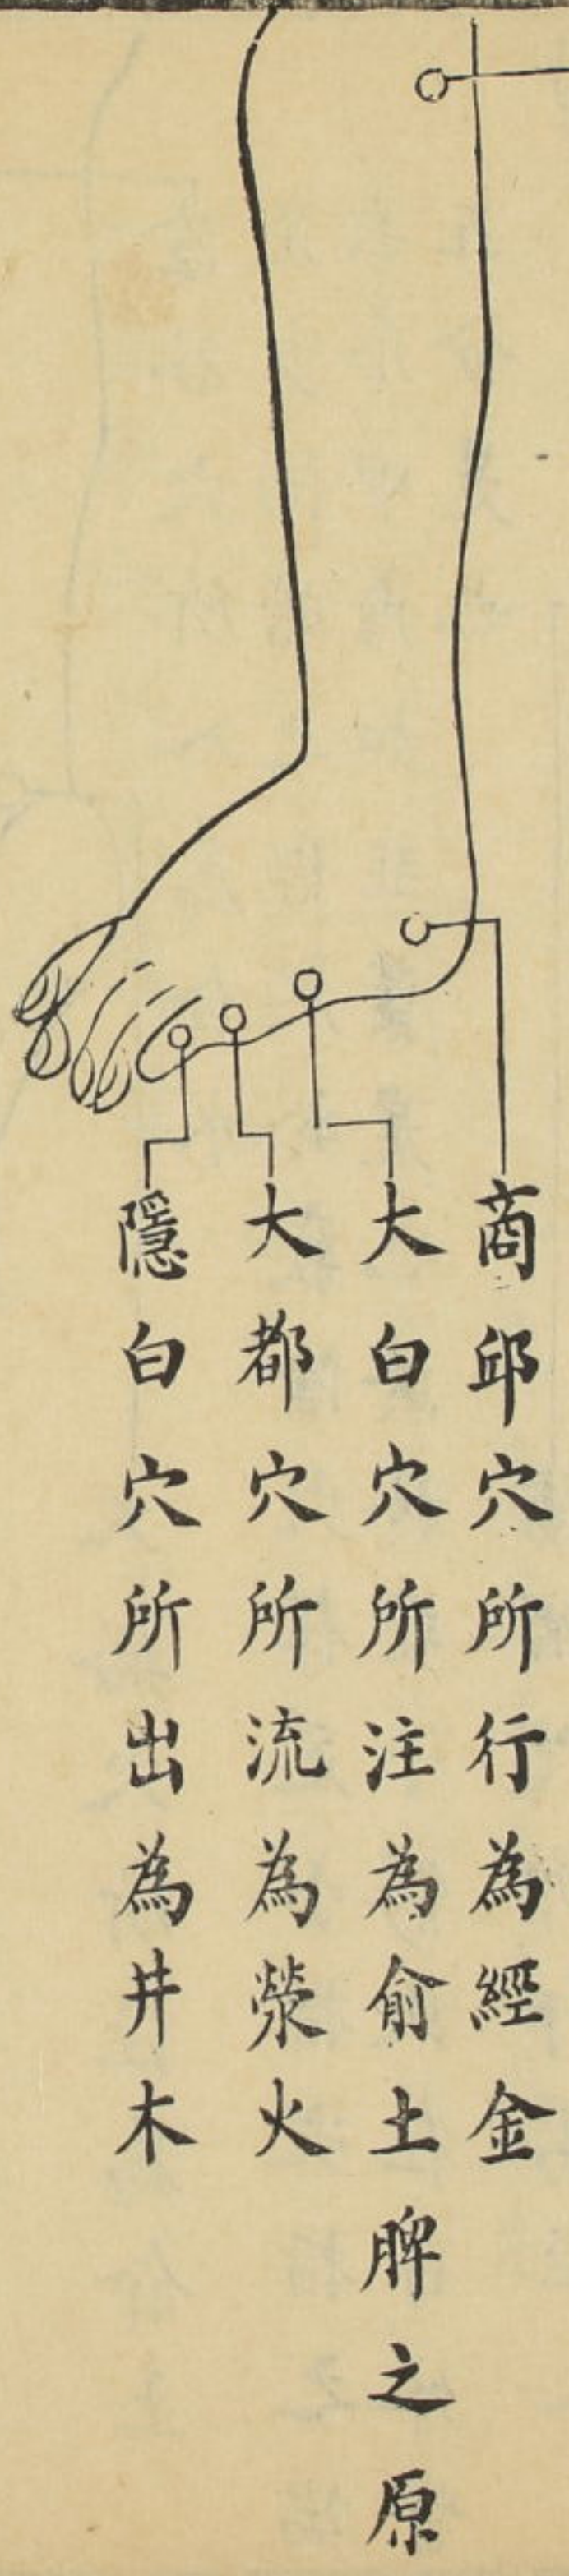 商邱穴所行為經金
大白穴所注為俞土脾之原
大都穴所流為滎火
隱白穴所出為井木